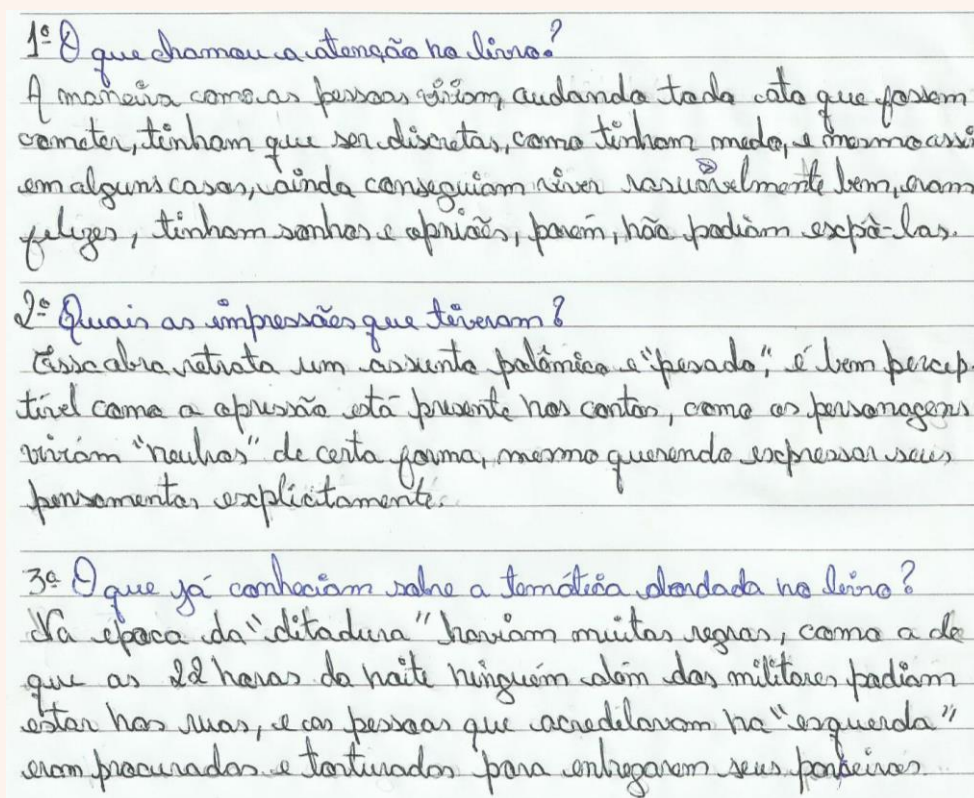 1º O que chamou a atenção no livro?
A maneira como as pessoas viviam, cuidando todo ato que fossem
cometer, tinham que ser discretas, como tinham medo, e mesmo assi
em alguns casos, ainda conseguiam viver rasuavelmente bem, eram
felizes, tinham sonhos e opniões, porém, não podiam expô-las.
2º Quais as impressões que tiveram?
Essa obra retrata um assunto polêmico e "pesado", é bem percep-
tível como a opressão está presente nos contos, como os personagens
viviam "neulros" de certa forma, mesmo querendo expressar seus
pensamentos explicitamente.
3º O que já conheciam sobre a temática abordada no livro?
Na época da "ditadura" haviam muitas regras, como a de
que as 22 horas da noite ninguém além dos militares podiam
estar nas ruas, e as pessoas que acreditavam na "esquerda"
eram procurados e torturados para entregarem seus parceiros.